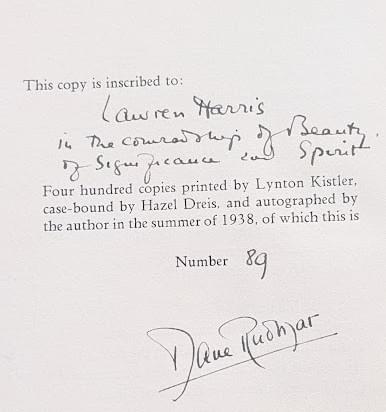 This copy is inscribed to:
Lawren Harris
in the comradship of Beauty,
of Significance and Spirit
Four hundred copies printed by Lynton Kistler,
case-bound by Hazel Dreis, and autographed by
the author in the summer of 1938, of which this is
Number 89
Dane Rudhyar